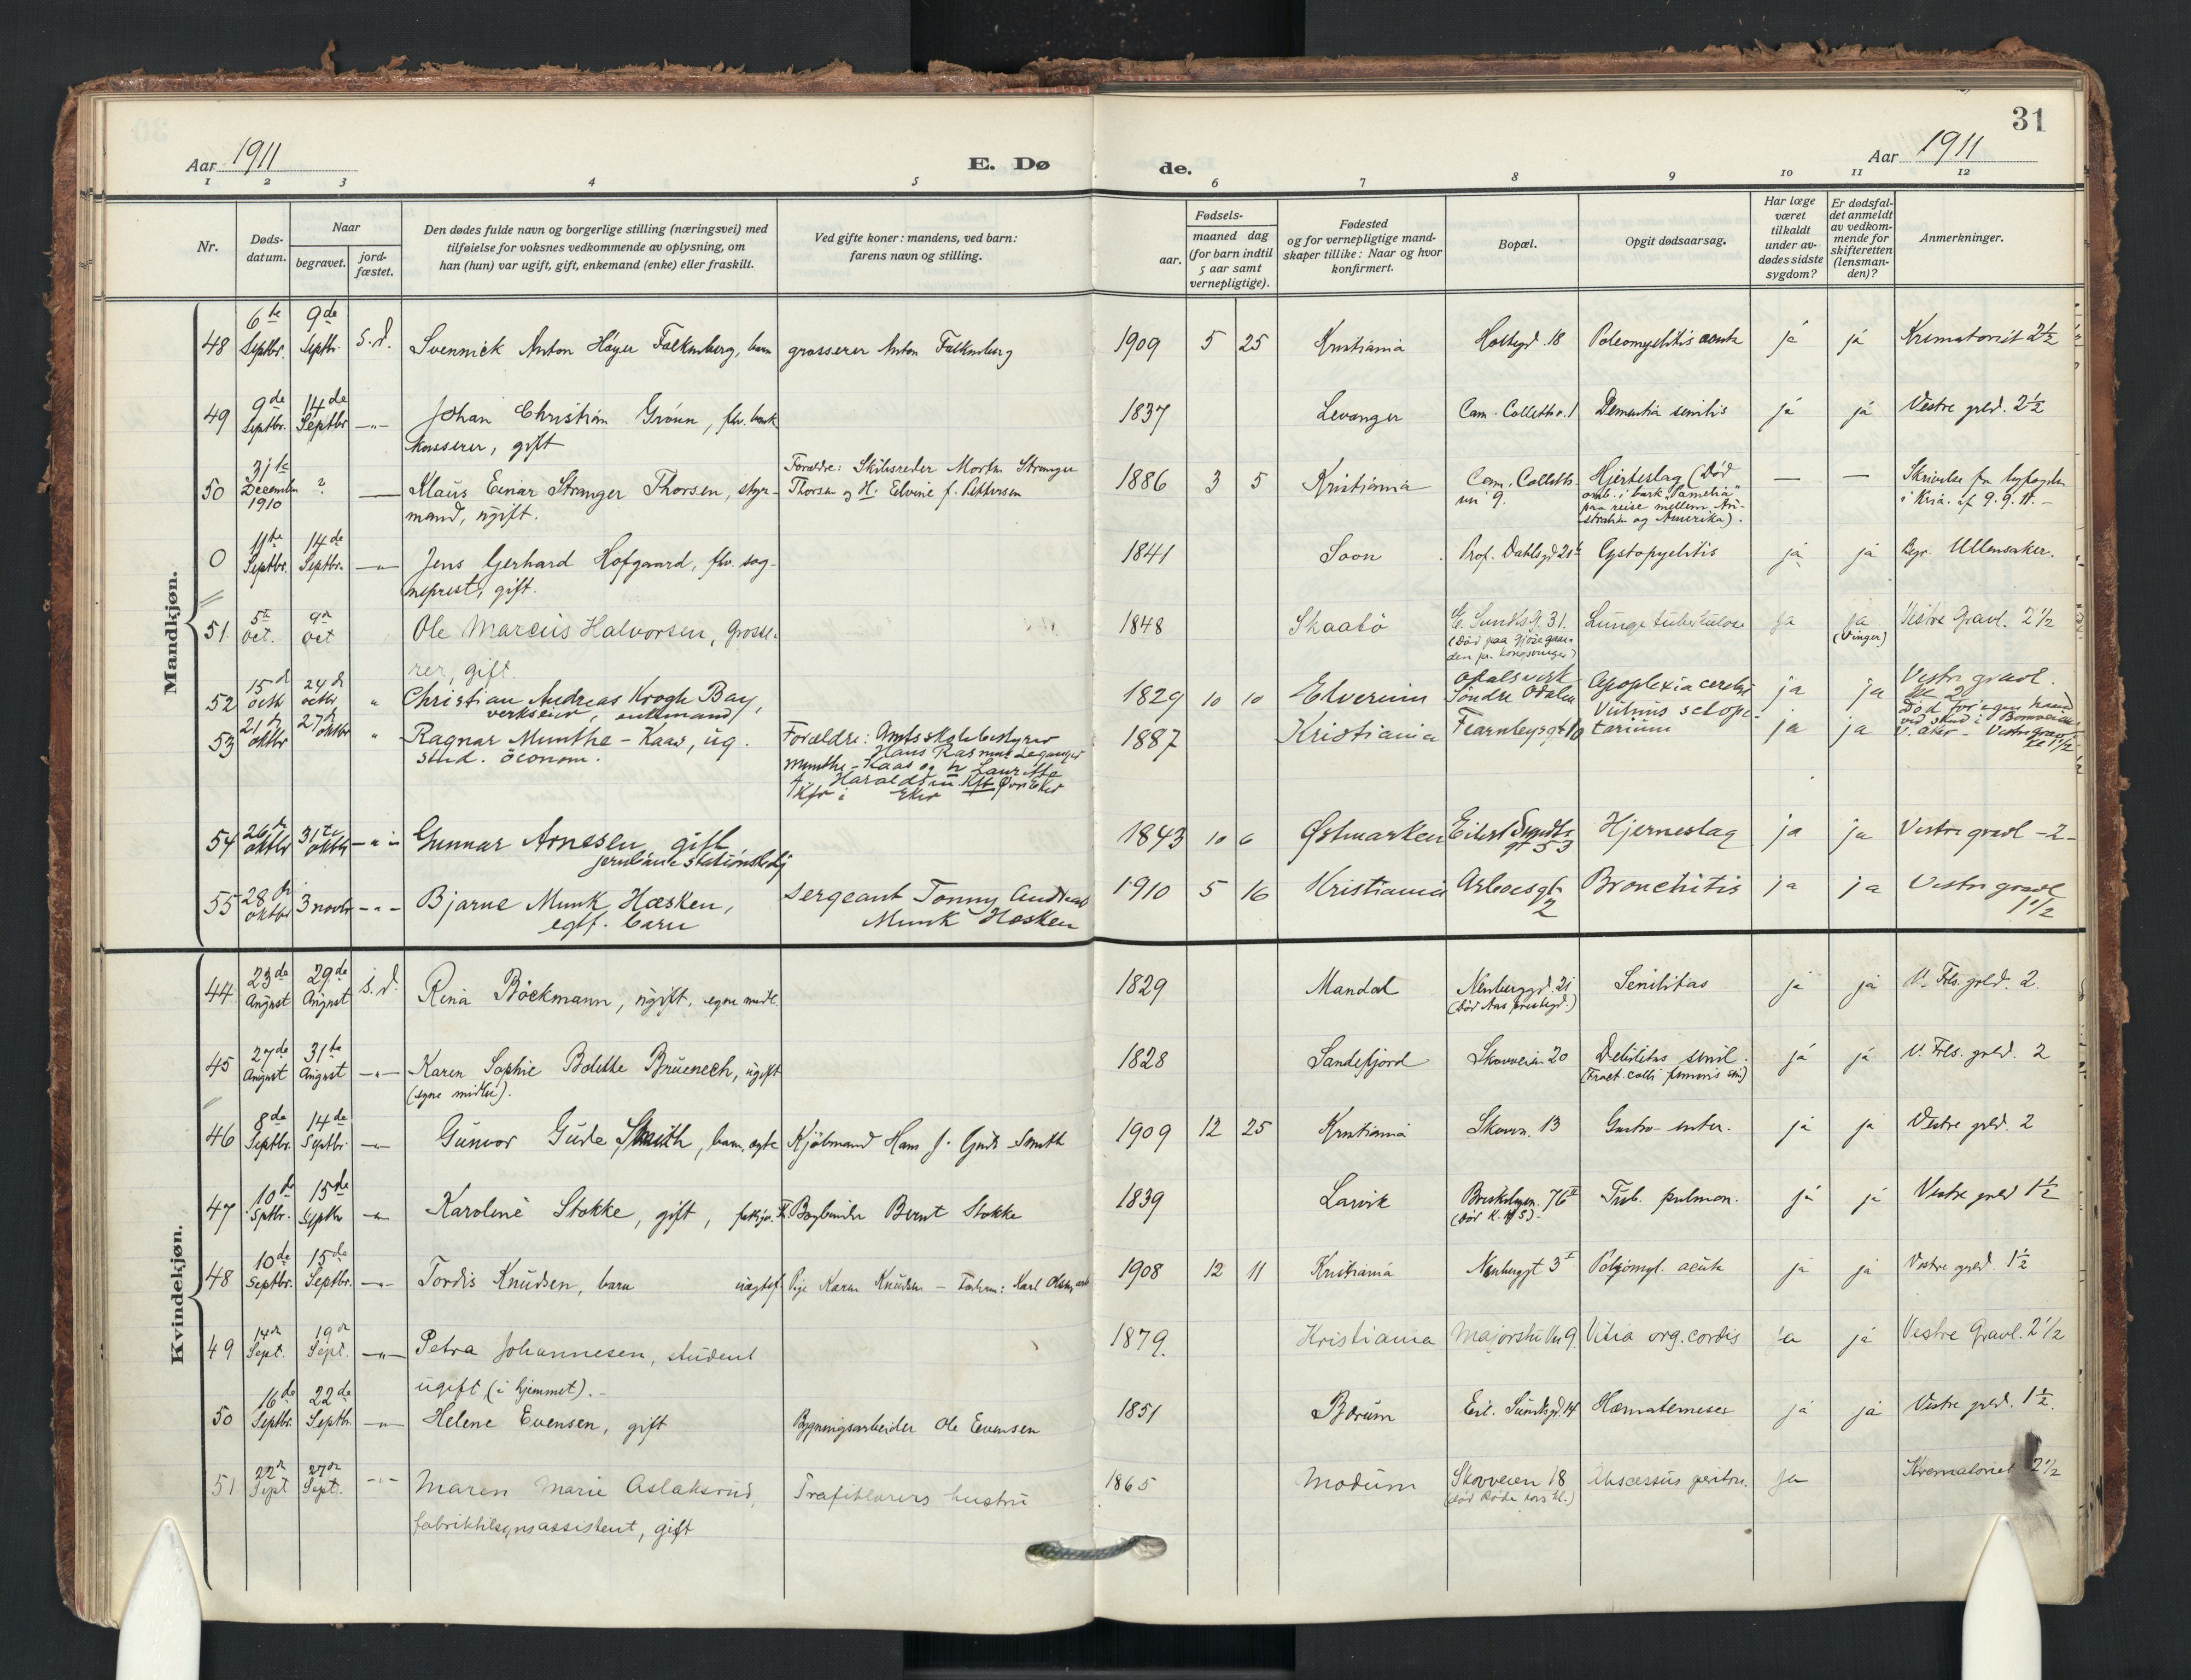 31
Aar 1911
E. Dø
de.
Aar 1911
1 2 3 4 5 6 7 8 9 10 11 12
Nr.
Døds-
datum.
Naar
begravet.
jord-
fæstet.
Den dødes fulde navn og borgerlige stilling (næringsvei) med
tilføielse for voksnes vedkommende av oplysning, om
han (hun) var ugift, gift, enkemand (enke) eller fraskilt.
Ved gifte koner: mandens, ved barn:
farens navn og stilling.
Fødsels-
aar.
maaned dag
(for barn indtil
5 aar samt
vernepligtige).
Fødested
og for vernepligtige mand-
skaper tillike: Naar og hvor
konfirmert.
Bopæl.
Opgit dødsaarsag.
Har læge
været
tilkaldt
under av-
dødes sidste
sygdom?
Er dødsfal-
det anmeldt
av vedkom-
mende for
skifteretten
(lensman-
den)?
Anmerkninger.
Mandkjøn.
48 6te Septbr. 9de Septbr. s.d. Svennick Anton Høyer Falkenberg, barn grosserer Anton Falkenberg 1909 5 25 Kristiania Holtegd. 18 Poleomyelitis acuta ja ja Krematoriet 2½
49 9de Septbr. 14de Septbr. —"— Johan Christian Grönn, fhv. bank 1837 Levanger Cam. Colletts v. 1 Dementia senilis ja ja Vestre grld. 2½
kasserer, gift
50 31te December 1910 ? — Klaus Einar Stranger Thorsen, styr-
mand, ugift.
Forældre: Skibsreder Morten Stranger
Thorsen og H. Elvine f. Pettersen
1886 3 5 Kristiania Cam. Colletts
vn 9.
Hjerteslag (Död
omb. i bark "Pamelia"
paa reise mellem Au-
stralien og Amerika).
— — Skrivelse fra byfogden
i Kria. af 9.9.11.—
0 11te Septbr. 14de Septbr. —"— Jens Gerhard Hofgaard, fhv. sog- 1841 Soon Prof. Dahlsgd 21b Cystopyelitis ja ja Begr. Ullensaker.
neprest, gift.
51. 5te Oct. 9de Oct Ole Marcus Halvorsen, Grosse- 1848 Skaatö E. Sundts G. 31. Lungetuberkulose ja ja Vestre Gravl. 2½
rer, gift.
(Vinger)
52 15de octb 24de octbr " Christian Andreas Krogh Bay,
verkseier, enkemand
1829 10 10 Elverum Odalsverk
Söndre Odalen
Apoplexia cerebri ja ja Vestre gravl.
Kl 2
53 21de oktbr 27de oktbr " Ragnar Munthe-Kaas, ug.
stud. öconom.
Forældre: Amtsskolebestyrer
Hans Rasmus Leganger
Munthe-Kaas og h Lauritze
f. Haraldsen
1887 Kristiania Fearnleysgt 10 Vulnus sclope-
tarium
ja ja Död for egen haand
ved skud i Bomveien
V. Aker - Vestre gravl
kl 1½
54 26de oktbr 31te oktbr —"— Gunnar Arnesen, gift
1843 10 6 Østmarken Eilert Sundts
gt 53
Hjerneslag ja ja Vestre gravl - 2 -
55 28de oktbr 3 novbr —"— Bjarne Munk Hæsken,
egtf. barn
Sergeant Tonny Andreas
Munk Hæsken
1910 5 16 Kristiania Arboesgt
2
Bronchitis ja ja Vestre gravl
1½
Kvindekjøn.
44 23de August 29de August s.d. Rina Böckmann, ugift, egne midl. 1829 Mandal Neuberggd. 21
(Död Aas prestegd.)
Senilitas ja ja V. Frls. grld. 2.
45 27de August 31te August —"— Karen Sophie Bolette Bruenech, ugift
(egne midler).
1828 Sandefjord Skovveien 20 Debilitas senil.
(Fract. colli femoris sin)
ja ja V. Frls. grld. 2
46 8de Septbr. 14de Septbr. —"— Gunvor Gude Smith, barn, egte Kjöbmand Hans J. Gude-Smith 1909 12 25 Kristiania Skovvn. 13 Gastro-enter. ja ja Vestre grld. 2
47 10de Sptbr. 15de Septbr —"— Karoline Stokke, gift, Bogbinder Bernt Stokke 1839 Larvik Briskebyvn. 76II Tub. pulmon. ja ja Vestre grld 1½
48 10de Septbr. 15de Septbr. —"— Tordis Knudsen, barn uægtef. Pige Karen Knudsen — Faderen: Karl Olsen, arb 1908 12 11 Kristiania Neubergt 3I Poliomyl. acuta ja ja Vestre grld. 1½
49 14de Sept. 19de Sept. —"— Petra Johannesen, student 1879. Kristiania Majorstu Vn 9. Vitia org. cordis ja ja Vestre Gravl. 2½
ugift (i hjemmet).-
50 16de Septbr. 22de Septbr. —"— Helene Evensen, gift Bygningsarbeider Ole Evensen 1851 Bærum Eil. Sundtsgd. 14 Hæmatemeses ja ja Vestre grld. 1½.
51 22de Sept 27de Sept. —"— Maren Marie Aslaksrud, Trafikkarers hustru 1865 Modum Skovveien 18 Abscessus periton. ja Krematoriet 2½
fabriktilsynsassistent, gift